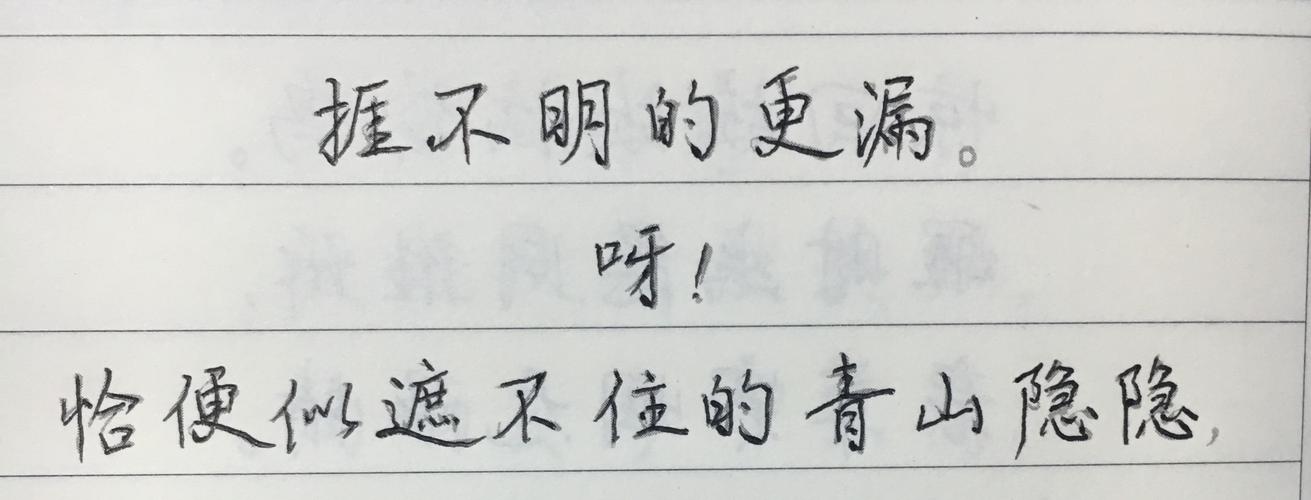 捱不明的更漏。
呀！
恰便似遮不住的青山隐隐，